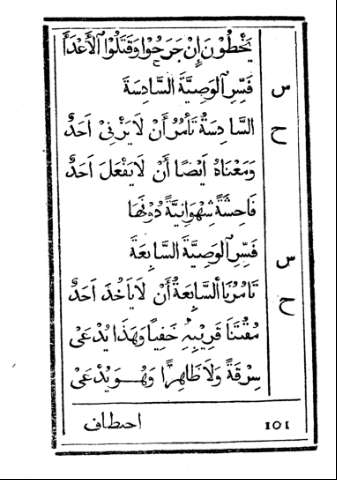 يَخْطُوْنَ إِنْ جَرَحُوْا وَقَتَلُوْا الأَعْدَآ
س فَسِّرِ الوَصِيَّةَ السَّادِسَةَ
ح السَّادِسَةُ تَأْمُرُ أَنْ لَا يَزْنِيْ أَحَدٌ
وَمَعْنَاهُ أَيْضًا أَنْ لَا يَفْعَلَ أَحَدٌ
فَاحِشَةً شِهْوَانِيَّةً دُوْنَهَا
س فَسِّرِ الوَصِيَّةَ السَّابِعَةَ
ح تَأْمُرُنَا السَّابِعَةُ أَنْ لَا يَأْخُذَ أَحَدٌ
مُقْتَنَا قَرِيْبِهِ خَفِيًا وَهَذَا يُدْعَىْ
سِرْقَةً وَلَا ظَاهِرًا وَهُوَ يُدْعَىْ
101 احتطاف